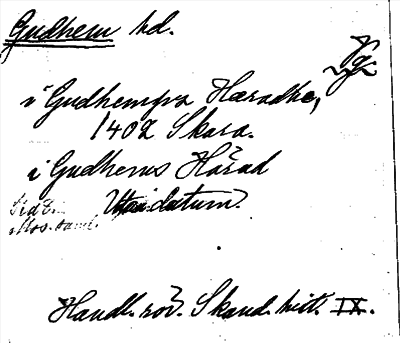 Gudhem hd.
Vg.
i Gudhempra Hæradhe,
1402 Skara.
i Gudhems Härad
Utan datum.
Handl. rör. Skand. hist. IX.